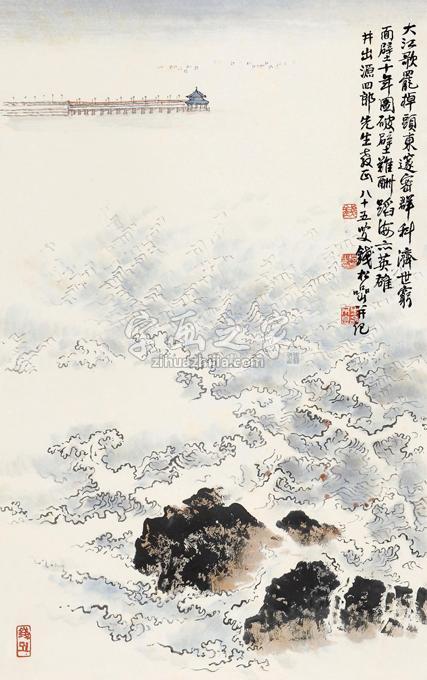 大江歌罷掉頭東邃密群科濟世窮
面壁十年圖破壁難酬蹈海亦英雄
井出源四郎先生教正 八十五叟錢松喦并記
字画之家
zihuazhijia.com